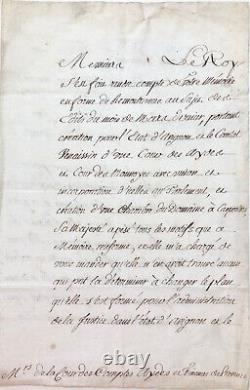 Messieurs Le Roy
s'est fait rendre compte de votre Mémoire
en forme de Remontrance au Sujet des
Edits du mois de Mars dernier, portant
création pour l'Etat d'avignon et le Comtat
Venaissin d'une Cour des Aydes
et Cour des Monnoyes avec union et
incorporation d'icelles au Parlement, et
création d'une Chambre du Domaine à Carpentras
Sa Majesté a pesé tous les motifs que ce
Mémoire renferme, et elle m'a chargé de
vous mander qu'elle n'en avoit trouvé aucun
qui put la déterminer à changer le plan
qu'elle s'est formé, pour l'administration
de la Justice dans l'état d'avignon et le
Mrs de la Cour des Comptes Aydes et Finances de Provence